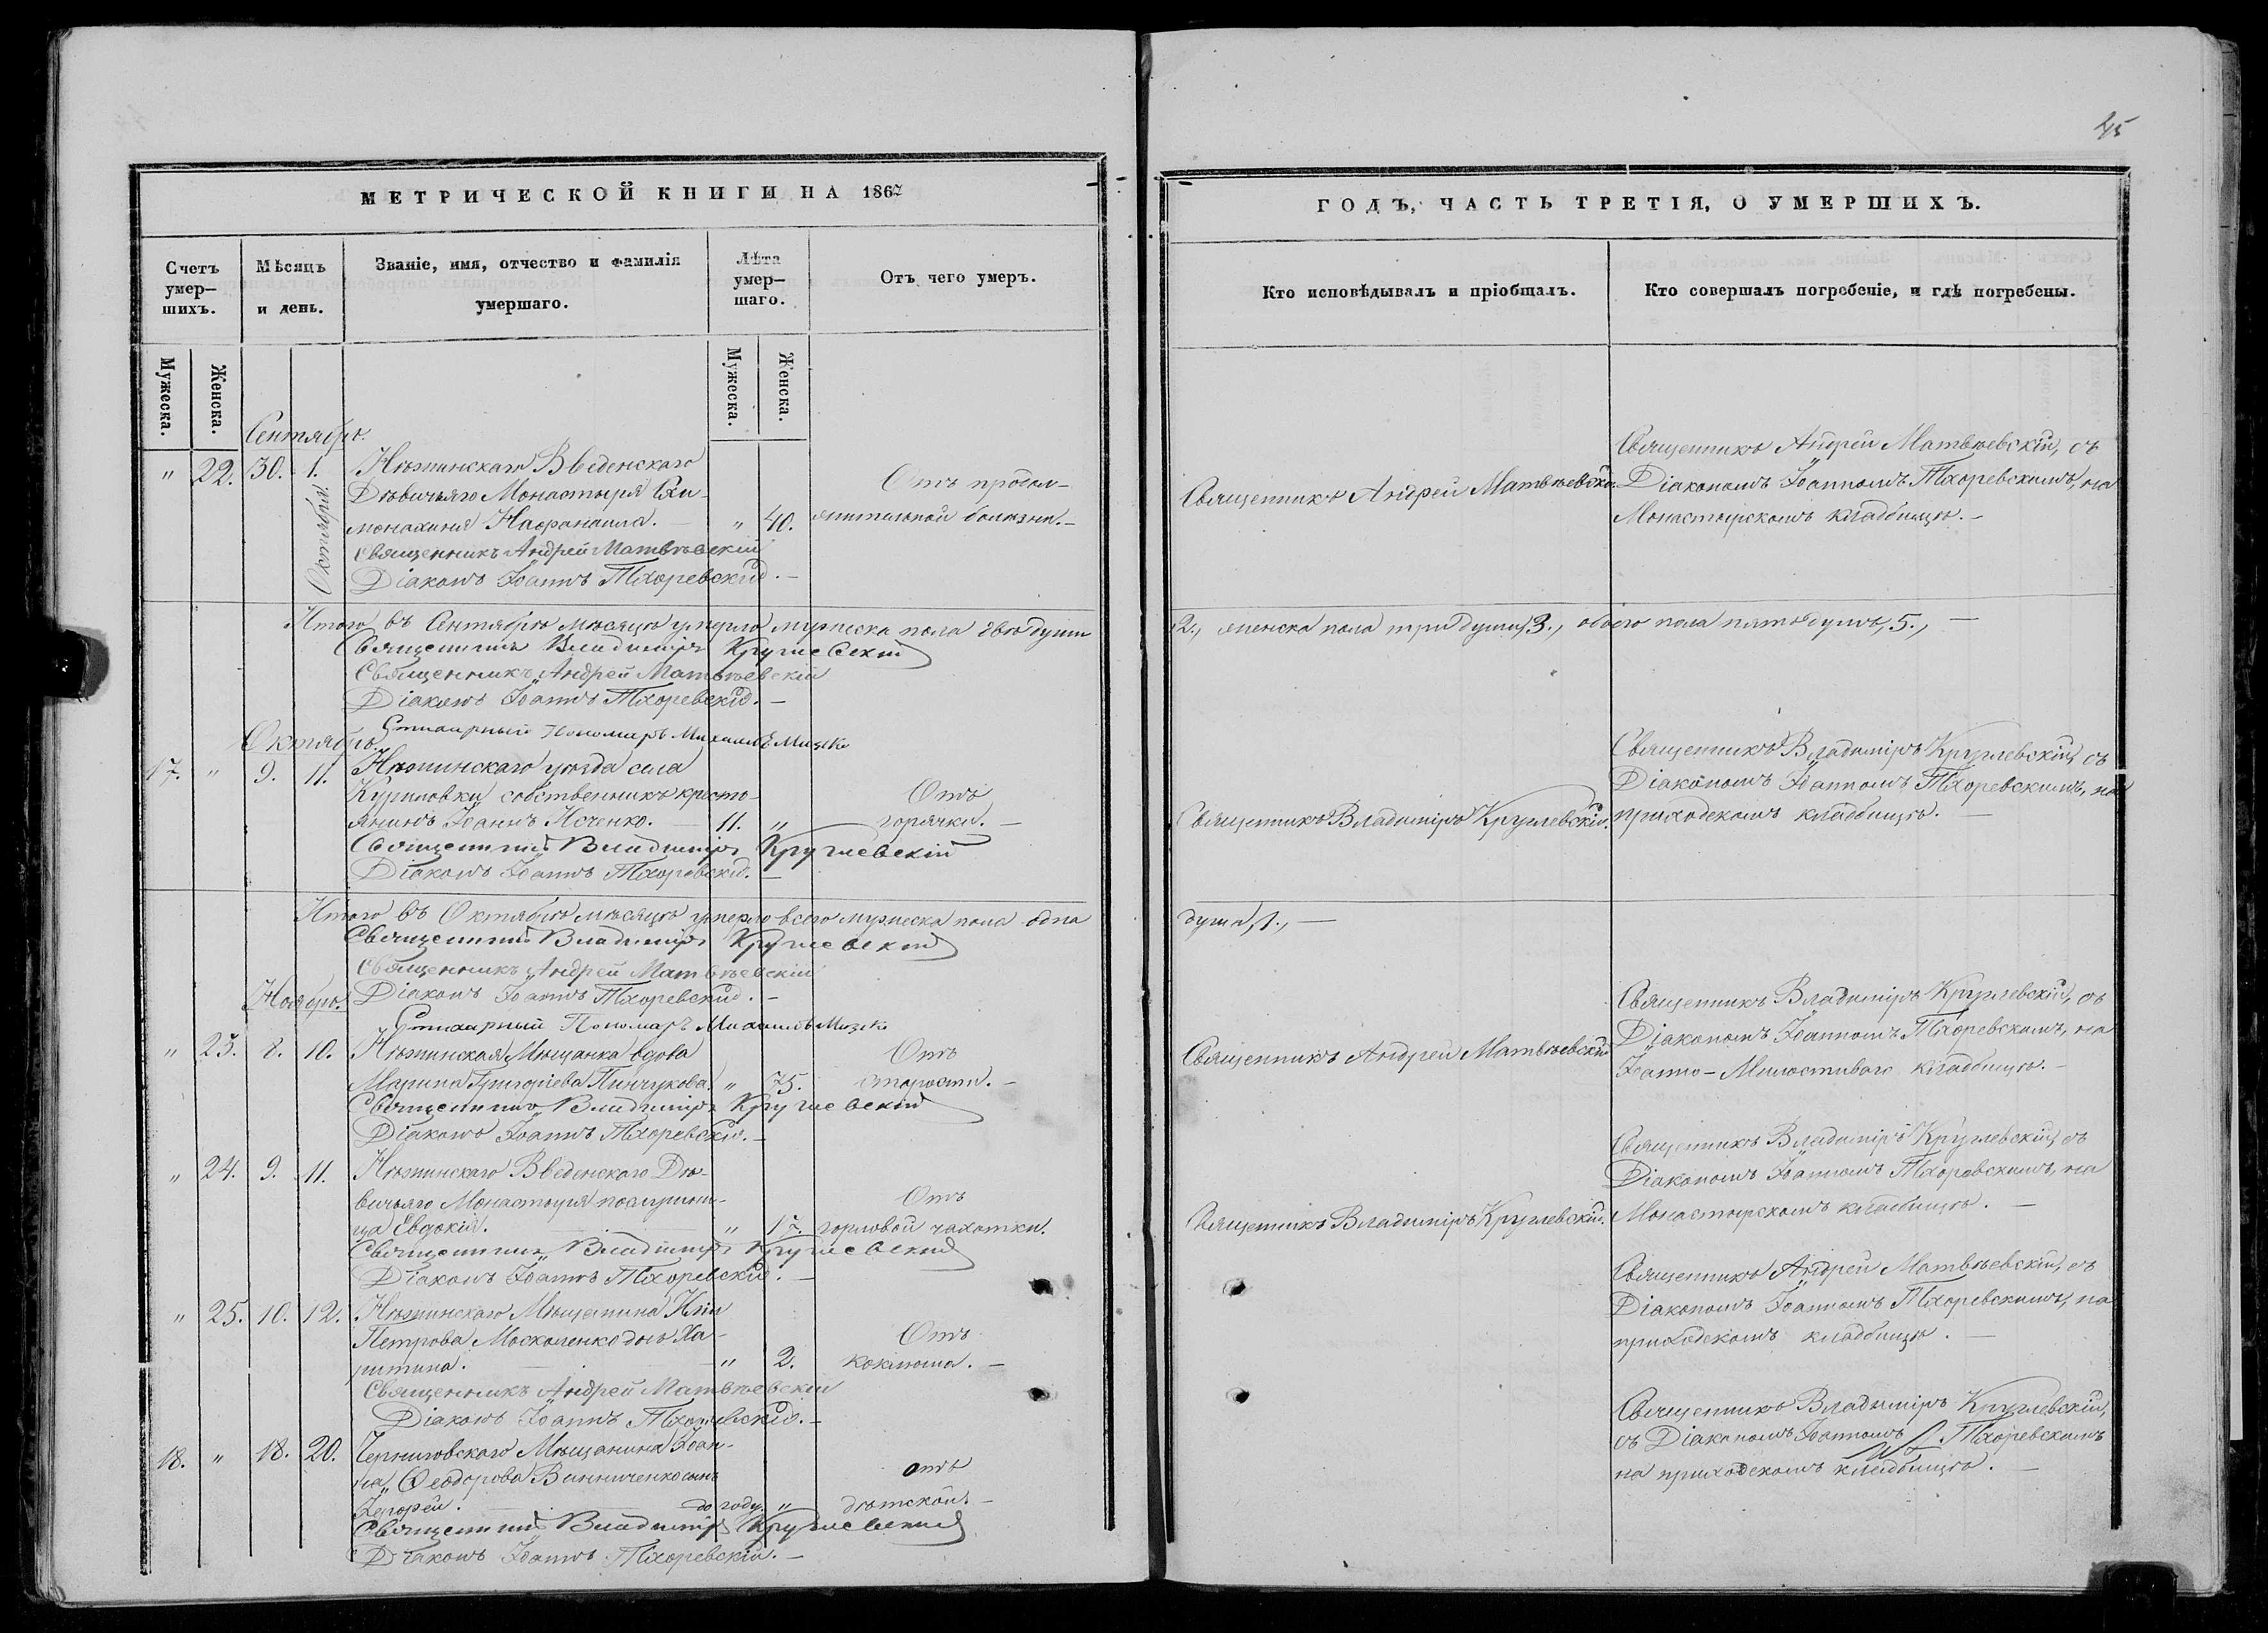 45
МЕТРИЧЕСКОЙ КНИГИ НА 1867
Счетъ умер-
шихъ.
Мѣсяцъ
и день.
Званіе, имя, отчество и фамилія
умершаго.
Лѣта
умер-
шаго.
Отъ чего умеръ.
Мужеска.
Женска.
Мужеска.
Женска.
Сентябрь.
Октября.
" 22. 30. 1. Нѣжинскаго Введенскаго
Дѣвичьяго Монастыря Схи-
монахиня Нафанаила. " 40.
Отъ продол-
жительной болѣзни.
Священникъ Андрей Матвѣевскій
Діаконъ Іоаннъ Тхоревскій.
Итого въ Сентябрѣ мѣсяцѣ умерло мужеска пола двѣ души
Священникъ Владиміръ Кружевскій
Священникъ Андрей Матвѣевскій
Діаконъ Іоаннъ Тхоревскій.
Стихарный Пономарь Михаилъ
Октябрь.
17. " 9. 11. Нѣжинскаго уѣзда села
собственникъ кресть-
янинъ Іоаннъ Исченко. 11. "
Отъ
горячки.
Священникъ Владиміръ Кружевскій
Діаконъ Іоаннъ Тхоревскій.
Итого въ Октябрѣ мѣсяцѣ умерло всего мужеска пола одна
Священникъ Владиміръ Кружевскій
Священникъ Андрей Матвѣевскій
Ноябрь. Діаконъ Іоаннъ Тхоревскій.
Стихарный Пономарь Михаилъ
" 23. 8. 10. Нѣжинская Мѣщанка вдова
Марина Григоріева Пинчукова. " 75.
Отъ
старости.
Священникъ Владиміръ Кружевскій
Діаконъ Іоаннъ Тхоревскій.
" 24. 9. 11. Нѣжинскаго Введенскаго Дѣ-
вичьяго Монастыря послушни-
ца Евдокія. " 17.
Отъ
горловой чахотки.
Священникъ Владиміръ Кружевскій
Діаконъ Іоаннъ Тхоревскій.
" 25. 10. 12. Нѣжинскаго Мѣщанина Иліи
Петрова Москаленко дочь Ха-
ритина. " 2.
Отъ
коклюша.
Священникъ Андрей Матвѣевскій
Діаконъ Іоаннъ Тхоревскій.
18. " 18. 20. Черниговскаго Мѣщанина Іоан-
на Ѳеодорова Винниченко сынъ
до году. "
отъ
дѣтской.
Священникъ Владиміръ Кружевскій
Діаконъ Іоаннъ Тхоревскій.
ГОДЪ, ЧАСТЬ ТРЕТІЯ, О УМЕРШИХЪ.
Кто исповѣдывалъ и пріобщалъ.
Кто совершалъ погребеніе, и гдѣ погребены.
Священникъ Андрей Матвѣевскій.
Священникъ Андрей Матвѣевскій, съ
Діакономъ Іоанномъ Тхоревскимъ, на
Монастырскомъ кладбищѣ.
2., женска пола три души, 3., обоего пола пять душъ, 5.,
Священникъ Владиміръ Кружевскій.
Священникъ Владиміръ Кружевскій, съ
Діакономъ Іоанномъ Тхоревскимъ, на
приходскомъ кладбищѣ.
душа, 1.,
Священникъ Андрей Матвѣевскій
Священникъ Владиміръ Кружевскій, съ
Діакономъ Іоанномъ Тхоревскимъ, на
Іоанно-Милостиваго кладбищѣ.
Священникъ Владиміръ Кружевскій.
Священникъ Владиміръ Кружевскій, съ
Діакономъ Іоанномъ Тхоревскимъ, на
Монастырскомъ кладбищѣ.
Священникъ Андрей Матвѣевскій, съ
Діакономъ Іоанномъ Тхоревскимъ, на
приходскомъ кладбищѣ.
Священникъ Владиміръ Кружевскій,
съ Діакономъ Іоанномъ Тхоревскимъ
на приходскомъ кладбищѣ.